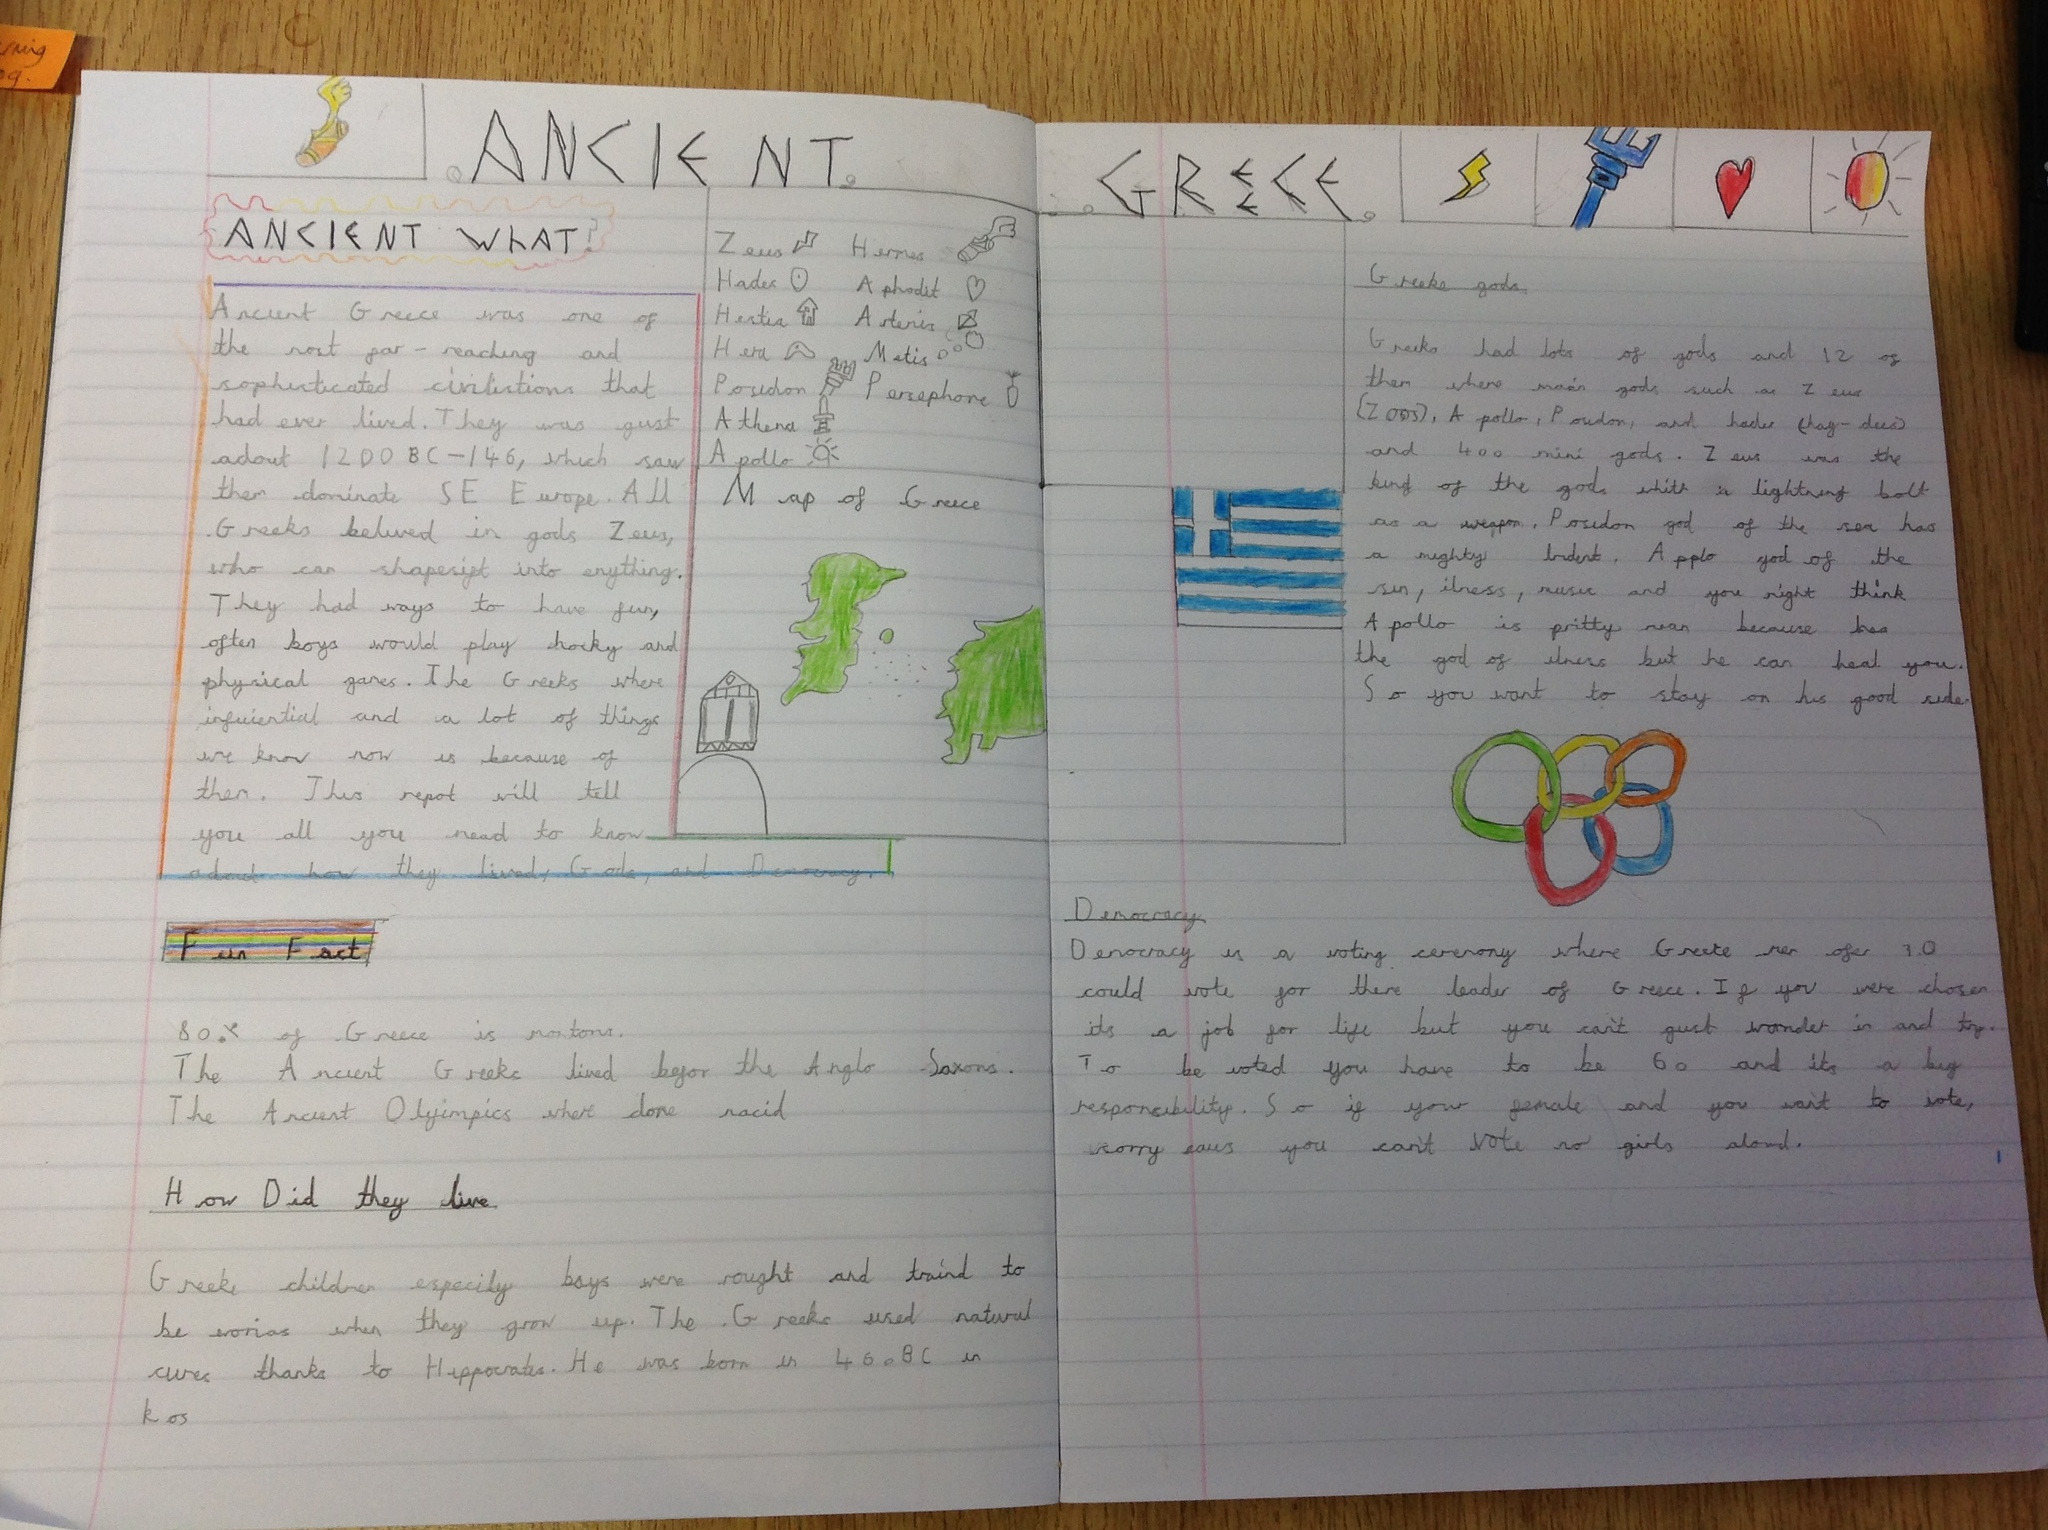 ANCIENT GREECE
ANCIENT WHAT?
Ancient Greece was one of
the most far-reaching and
sophisticated civilistions that
had ever lived. They was gust
adout 1200BC-146, which saw
them dominate SE Europe. All
Greeks belived in gods Zeus,
who can shapesift into enything.
They had ways to have fun,
often boys would play hocky and
physical games. The Greeks where
infuiential and a lot of things
we know now is because of
them. This repot will tell
you all you need to know
adout how they lived, Gods, and Democracy.
Zeus Hermes
Hades Aphodit
Hestia Artemis
Hera Metis
Posidon Persephone
Athena
Apollo
Map of Greece
Fun Fact
80% of Greece is
The Ancient Greeks lived befor the Anglo Saxons.
The Ancient Olyimpics where done nacid
How Did they live
Greeks children especily boys were rought and traind to
be worias when they grow up. The Greeks used natural
cures thanks to Hippocrates. He was born in 460BC in
kos
Greeks gods.
Greeks had lots of gods and 12 of
them where main gods such as Zeus
(ZOOS), Apollo, Posidon, and hades (hay-dees)
and 400 mini gods. Zeus was the
king of the gods lightning bolt
as a weapon. Posidon god of the sea has
a mighty trident. Applo god of the
sun, ilness, music and you might think
Apollo is pritty mean because hes
the god of ilness but he can heal you.
So you want to stay on his good side.
Democracy
Democracy is a voting ceremony where Greece men ofer 30
could vote for there leader of Greece. If you were chosen
its a job for life but you can't gust wonder in and try.
To be voted you have to be 60 and its a big
responsibility. So if your female and you want to vote,
sorry caus you can't vote no girls aloud.